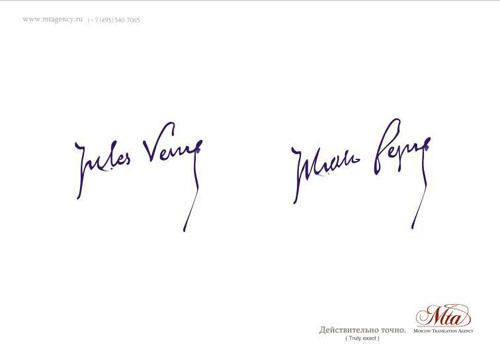 www.mtagency.ru | +7(495)540-7065
Jules Verne
Жюль Верн
Действительно точно.
( Truly exact )
Mta
Moscow Translation Agency